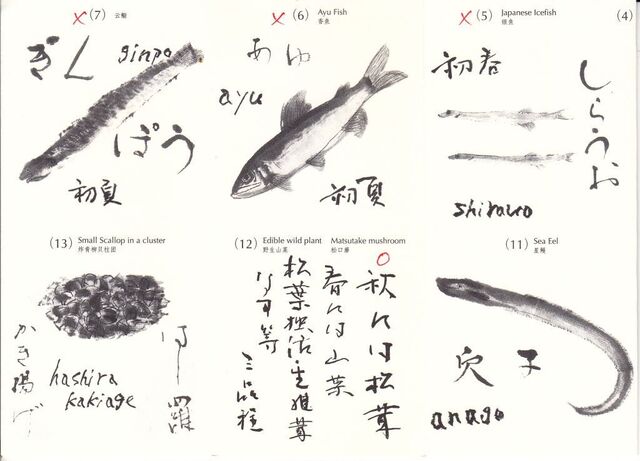 (7) 云鰤
ぎん
ginpo
ぽう
初夏
(6) Ayu Fish
香鱼
あゆ
ayu
初夏
(5) Japanese Icefish
银鱼
初春
しらうお
shirauo
(4)
(13) Small Scallop in a cluster
炸青柳贝柱团
かき揚げ
hashira
kakiage
はしら
(12) Edible wild plant Matsutake mushroom
野生山菜 松口蘑
秋には松茸
春には山菜
松葉独活・生椎茸
なす等
三品程
(11) Sea Eel
星鳗
穴子
anago